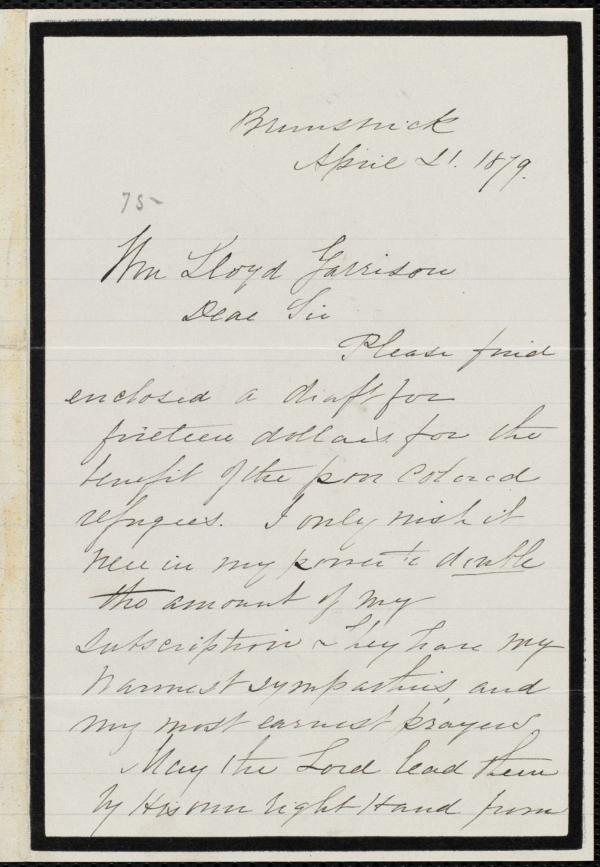 Brunswick
April 21. 1879.
75-
Wm Lloyd Garrison
Dear Sir
Please find
enclosed a draft for
fineteen dollars for the
benefit of the poor colored
refugees. I only wish it
were in my power to double
the amount of my
subscription & they have my
warmest sympathies and
my most earnest prayers
May the Lord lead them
by His own right Hand from